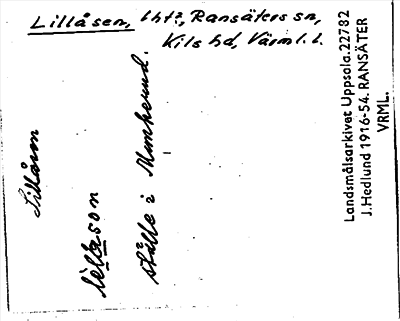 Lillåsen, lht?, Ransäters sn,
Kils hd, Värml. l.
Lillåsen
ställe i Munkerud.
Landsmålsarkivet Uppsala. 22782
J. Hedlund 1916-54. RANSÄTER
VRML.